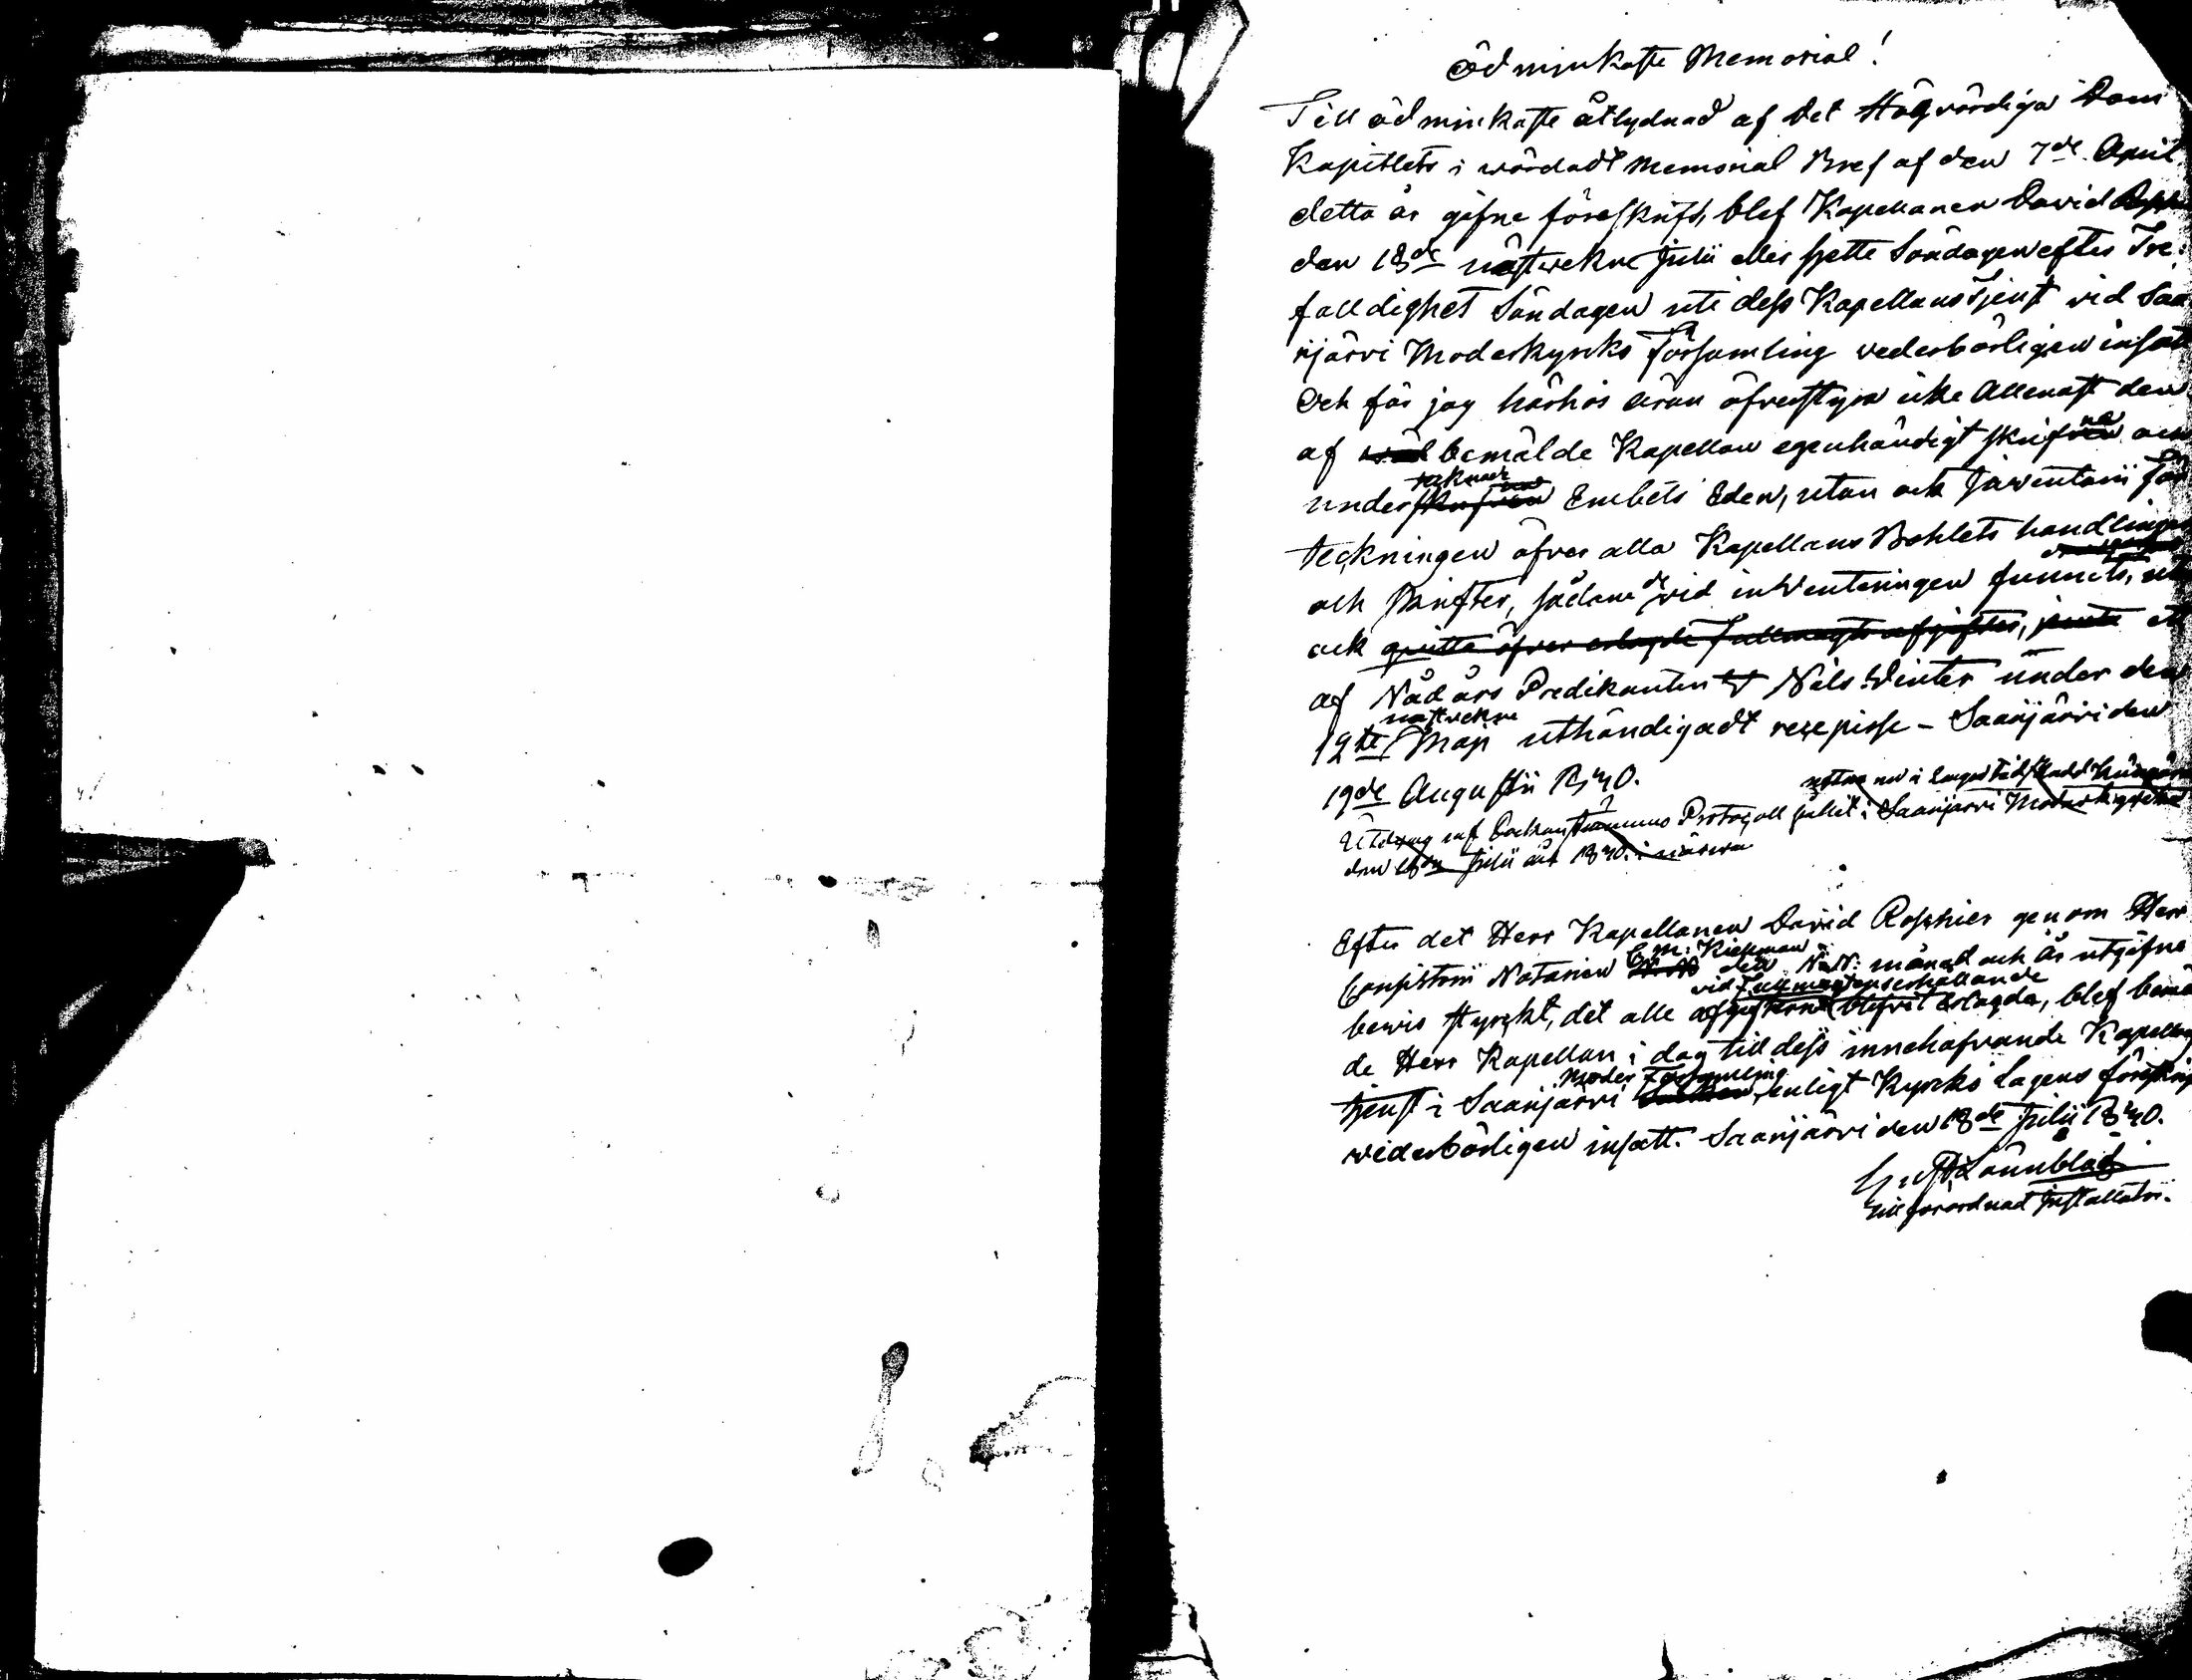 Ödmjukaste Memorial!
Till ödmjukaste åtlydnad af Det Högvördiga Dom
Kapitlets i wördadt Memorial Bref af den 7de April
detta år gifne föreskrift, blef Kapellanen David
den 18de nästvekne Julii eller sjette Söndagen efter Tre
falldighet Söndagen uti dess Kapellans Tjenst vid Saa
rijärvi Moderkyrko Församling vederbörligen insatt
Och får jag härhos äran öfverstyra icke Allenast den
af bemälde Kapellan egenhändigt skrifne och
tecknade
under Embets Eden, utan ock Inventarii För
teckningen öfver alla Kapellans Bohlets handlingar
och skrifter, sådane de vid inventeringen funnits,
ock qvitto öfver erlagde fullmagts afgifter, ett
af Nådårs Predikanten Nils Winter under den
nästvekne
19de Maji uthändigadt recepisse - Saarijärvi den
19de Augustii 1840.
Utdrag af Sockenstämmo Protocoll hållit i Saarijärvi Moderkyrka
den Julii år 1840. i närvaro
Efter det Herr Kapellanen David Roschier genom Herr
M: Kiekman
Consistorii Notarien den N:N: månad och År utgifne
vid fullmagtens erhållande
bevis styrckt, det alle afgifterne blifvit erlagda, blef bemä
de Herr Kapellan i dag till dess innehafvande Kapellans
Moder Församling
tjenst i Saarijärvi enligt Kyrko Lagens föreskrift
vederbörligen insatt. Saarijärvi den 18de Julii 1840.
Lönnblad
till förordnad Installator.